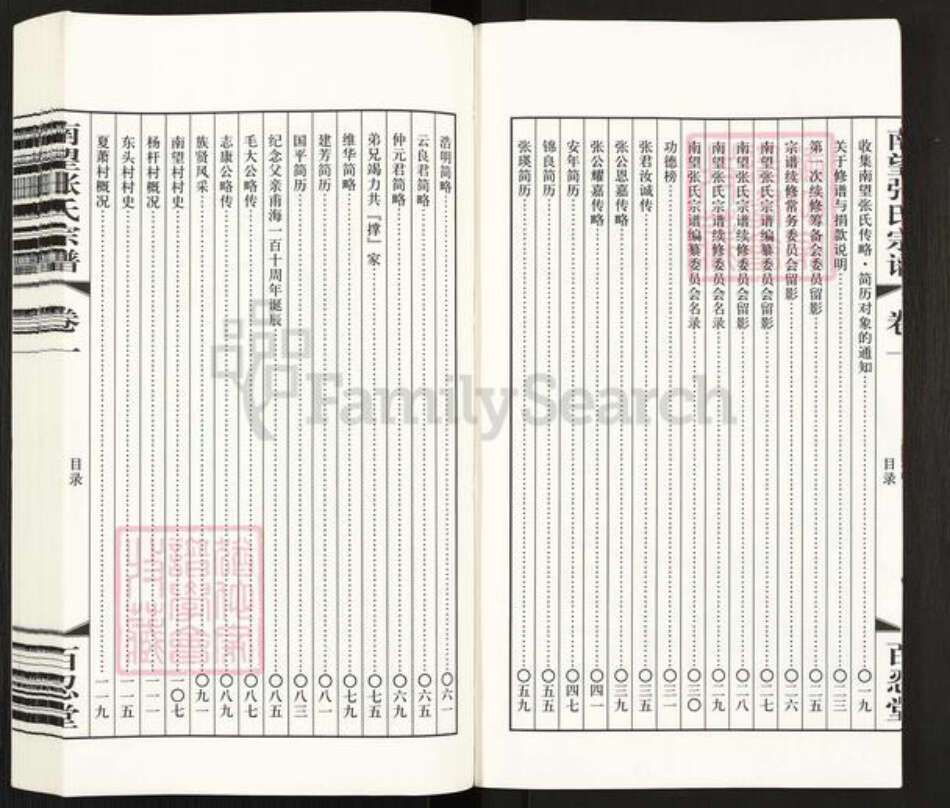 收集南望张氏传略·简历对象的通知……〇一九
关于修谱与捐款说明……〇二三
第一次续修筹备会委员留影……〇二五
宗谱续修常务委员会留影……〇二六
南望张氏宗谱编纂委员会留影……〇二七
南望张氏宗谱续修委员会留影……〇二八
南望张氏宗谱续修委员会名录……〇二九
南望张氏宗谱编纂委员会名录……〇三〇
功德榜……〇三一
张君汝诚传……〇三五
张公恩嘉传略……〇三九
张公耀嘉传略……〇四一
安年简历……〇四七
锦良简历……〇五五
张瑛简历……〇五九
目录
百忍堂
浩明简略……〇六一
云良君简略……〇六五
仲元君简略……〇六九
弟兄竭力共『撑』家……〇七五
维华简略……〇七九
建芳简历……〇八一
国平简历……〇八三
纪念父亲甫海一百十周年诞辰……〇八五
毛大公略传……〇八七
志康公略传……〇八九
族贤风采……〇九一
南望村村史……一〇七
杨杆村概况……一一一
东头村村史……一一五
夏萧村概况……一一九
南望张氏宗谱 卷一
目录
百忍堂
FamilySearch